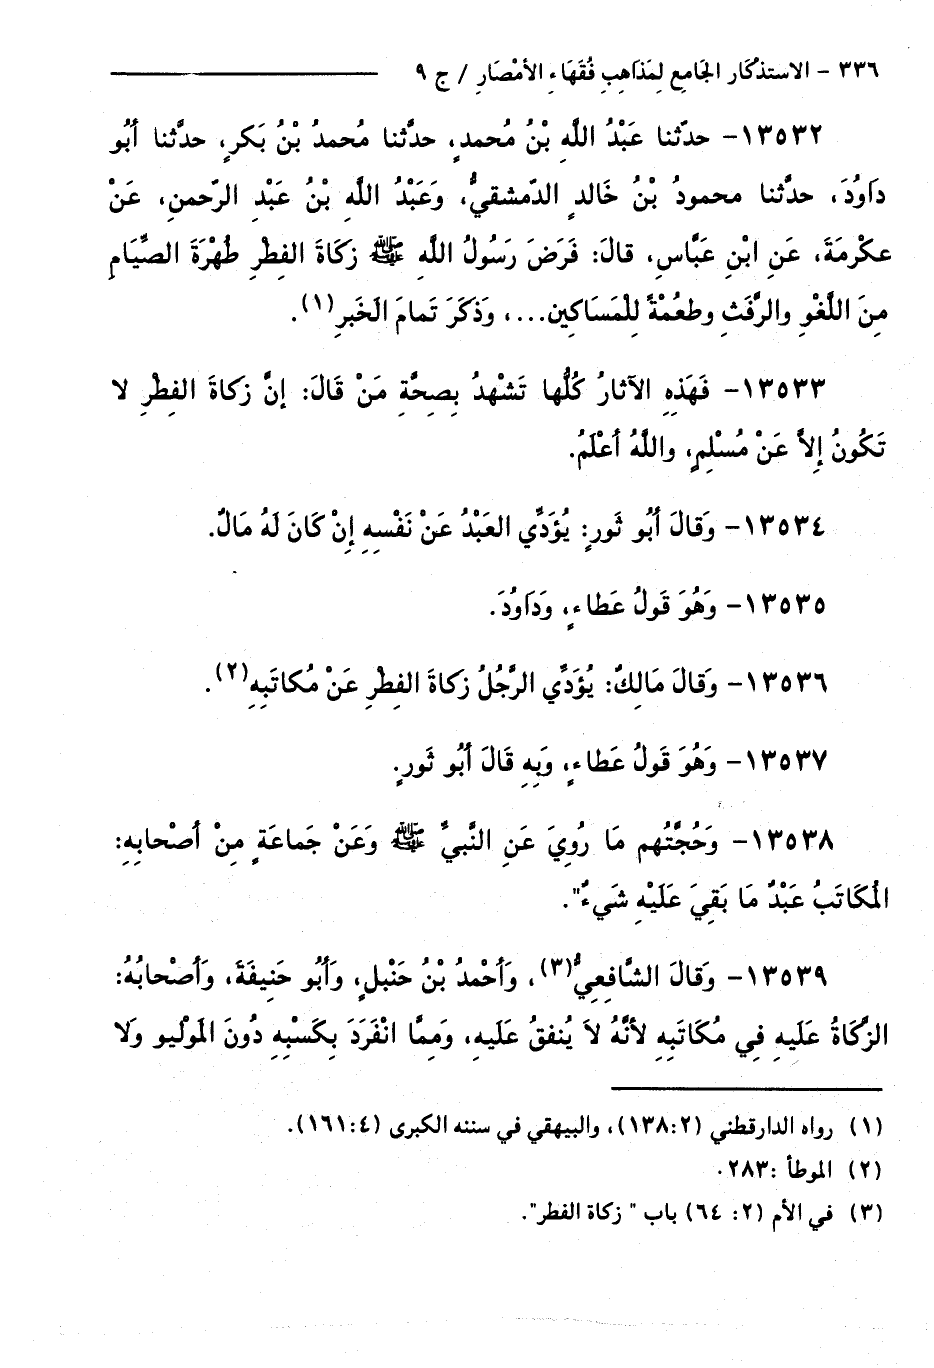 ٣٣٦ - الاستذكار الجامع لمذاهب فُقَهَاءِ الأمْصَارِ / ج ٩
١٣٥٣٢- حدّثنا عَبْدُ اللَّهِ بْنُ مُحمدٍ، حدَّثنا مُحمدُ بْنُ بَكرٍ، حدَّثنا أَبُو
دَاوُدَ، حدَّثنا محمودُ بْنُ خَالدٍ الدّمشقيُّ، وَعَبْدُ اللَّهِ بْنُ عَبْدِ الرّحمنِ، عَنْ
عكْرمَةَ، عَنِ ابْنِ عَبَّاسٍ، قالَ: فَرَضَ رَسُولُ اللَّهِ ﷺ زكَاةَ الفِطْرِ طُهْرَةَ الصِّيَامِ
مِنَ اللَّغْوِ والرَّفَثِ وطعُمْةً لِلْمَسَاكِينِ...، وَذكَرَ تَمامَ الخَبرِ(١).
١٣٥٣٣- فَهَذِهِ الآثارُ كُلُّها تَشْهدُ بِصحَّةِ مَنْ قَالَ: إنَّ زكاةَ الفِطْرِ لا
تَكُونُ إِلاَّ عَنْ مُسْلِمٍ، واللَّهُ أعْلَمُ.
١٣٥٣٤- وَقالَ أَبُو ثَورٍ: يُؤَدِّي العَبْدُ عَنْ نَفْسِهِ إِنْ كَانَ لَهُ مَالٌ.
١٣٥٣٥- وَهُوَ قَولُ عَطاءٍ، وَدَاوُدَ.
١٣٥٣٦- وَقالَ مَالِكٌ: يُؤَدِّي الرَّجُلُ زكاةَ الفِطْرِ عَنْ مُكاتَبِهِ(٢).
١٣٥٣٧- وَهُوَ قَولُ عَطاءٍ، وَبِهِ قَالَ أَبُو ثَورٍ.
١٣٥٣٨- وَحُجَّتُهم مَا رُوِيَ عَنِ النَّبيِّ ﷺ وَعَنْ جَماعَةٍ مِنْ أصْحابِهِ:
المُكَاتَبُ عَبْدٌ مَا بَقِيَ عَلَيْهِ شَيءٌ".
١٣٥٣٩- وَقالَ الشَّافِعِيُّ(٣)، وَأَحْمدُ بْنُ حَنْبلٍ، وَأَبُو حَنِيفَةَ، وَأَصْحابُهُ:
الزَّكَاةُ عَلَيهِ فِي مُكَاتَبِهِ لأنَّهُ لاَ يُنفقُ عَلَيهِ، وَمِمَّا انْفَرَدَ بِكَسْبِهِ دُونَ المَوْليو وَلا
(١) رواه الدارقطني (١٣٨:٢)، والبيهقي في سننه الكبرى (١٦١:٤).
(٢) الموطأ :٢٨٣.
(٣) في الأم (٢: ٦٤) باب " زكاة الفطر".